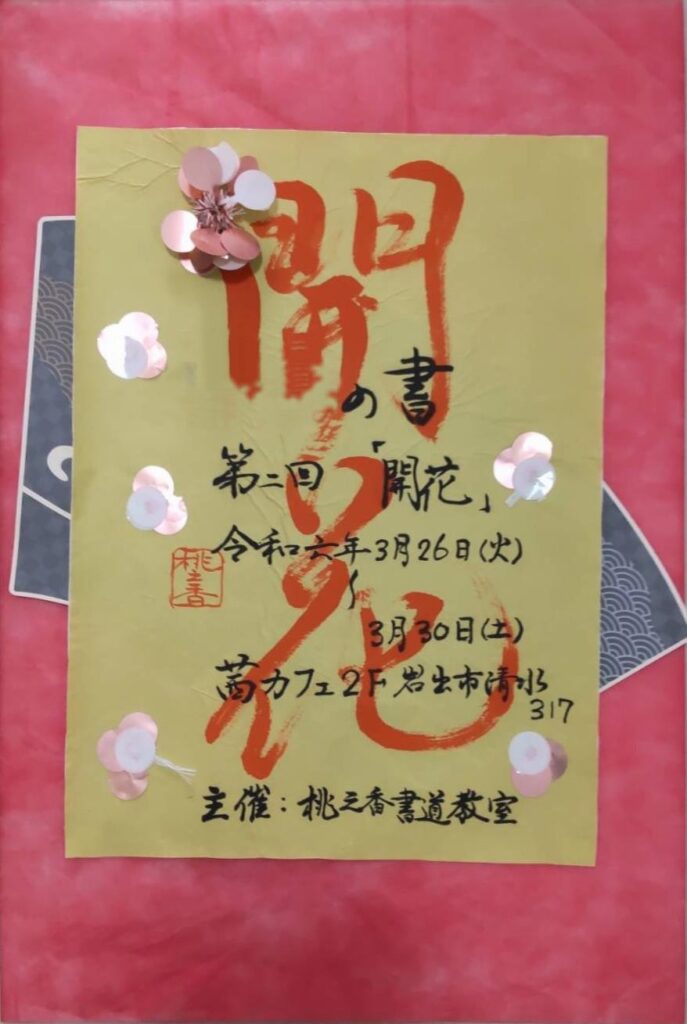 開花
の書
第二回 「開花」
令和六年3月26日(火)
〜
3月30日(土)
桃之香
茜カフェ2F 岩出市清水
317
主催：桃之香書道教室